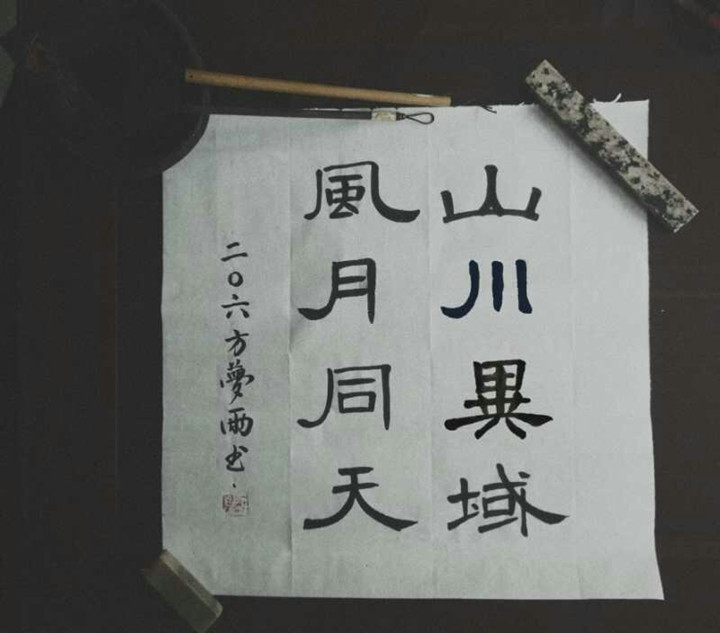 山川異域
風月同天
二〇六方夢雨书